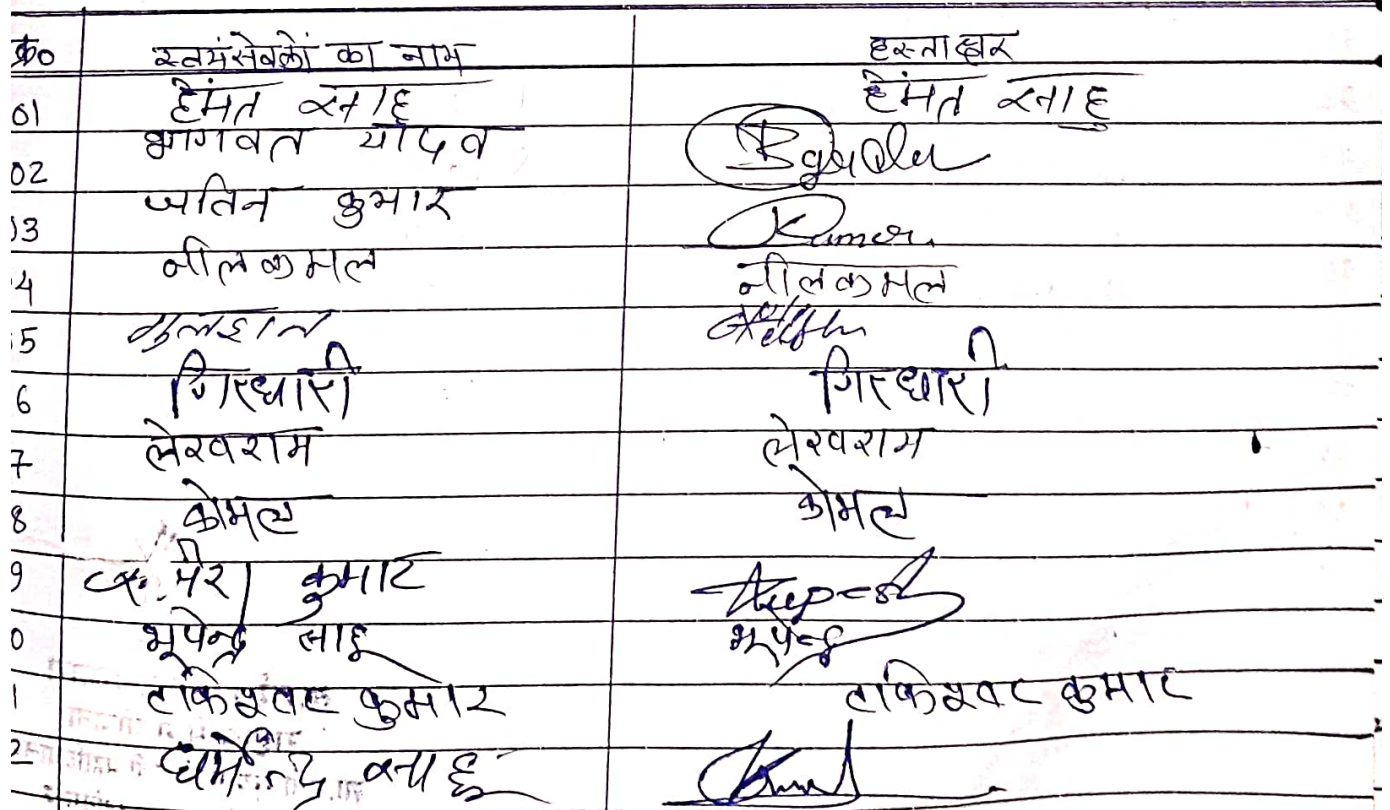 क्र० स्वयंसेवकों का नाम हस्ताक्षर
01 हेमंत साहू हेमंत साहू
02 भागवत यादव
03 जतिन कुमार Kumar.
4 नीलकमल नीलकमल
5 गुलशन
6 गिरधारी गिरधारी
7 लेखराम लेखराम
8 कोमल कोमल
9 कुमार
0 भूपेन्द्र साहू भूपेन्द्र
1 टाकेश्वर कुमार टाकेश्वर कुमार
2 धर्मेन्द्र साहू